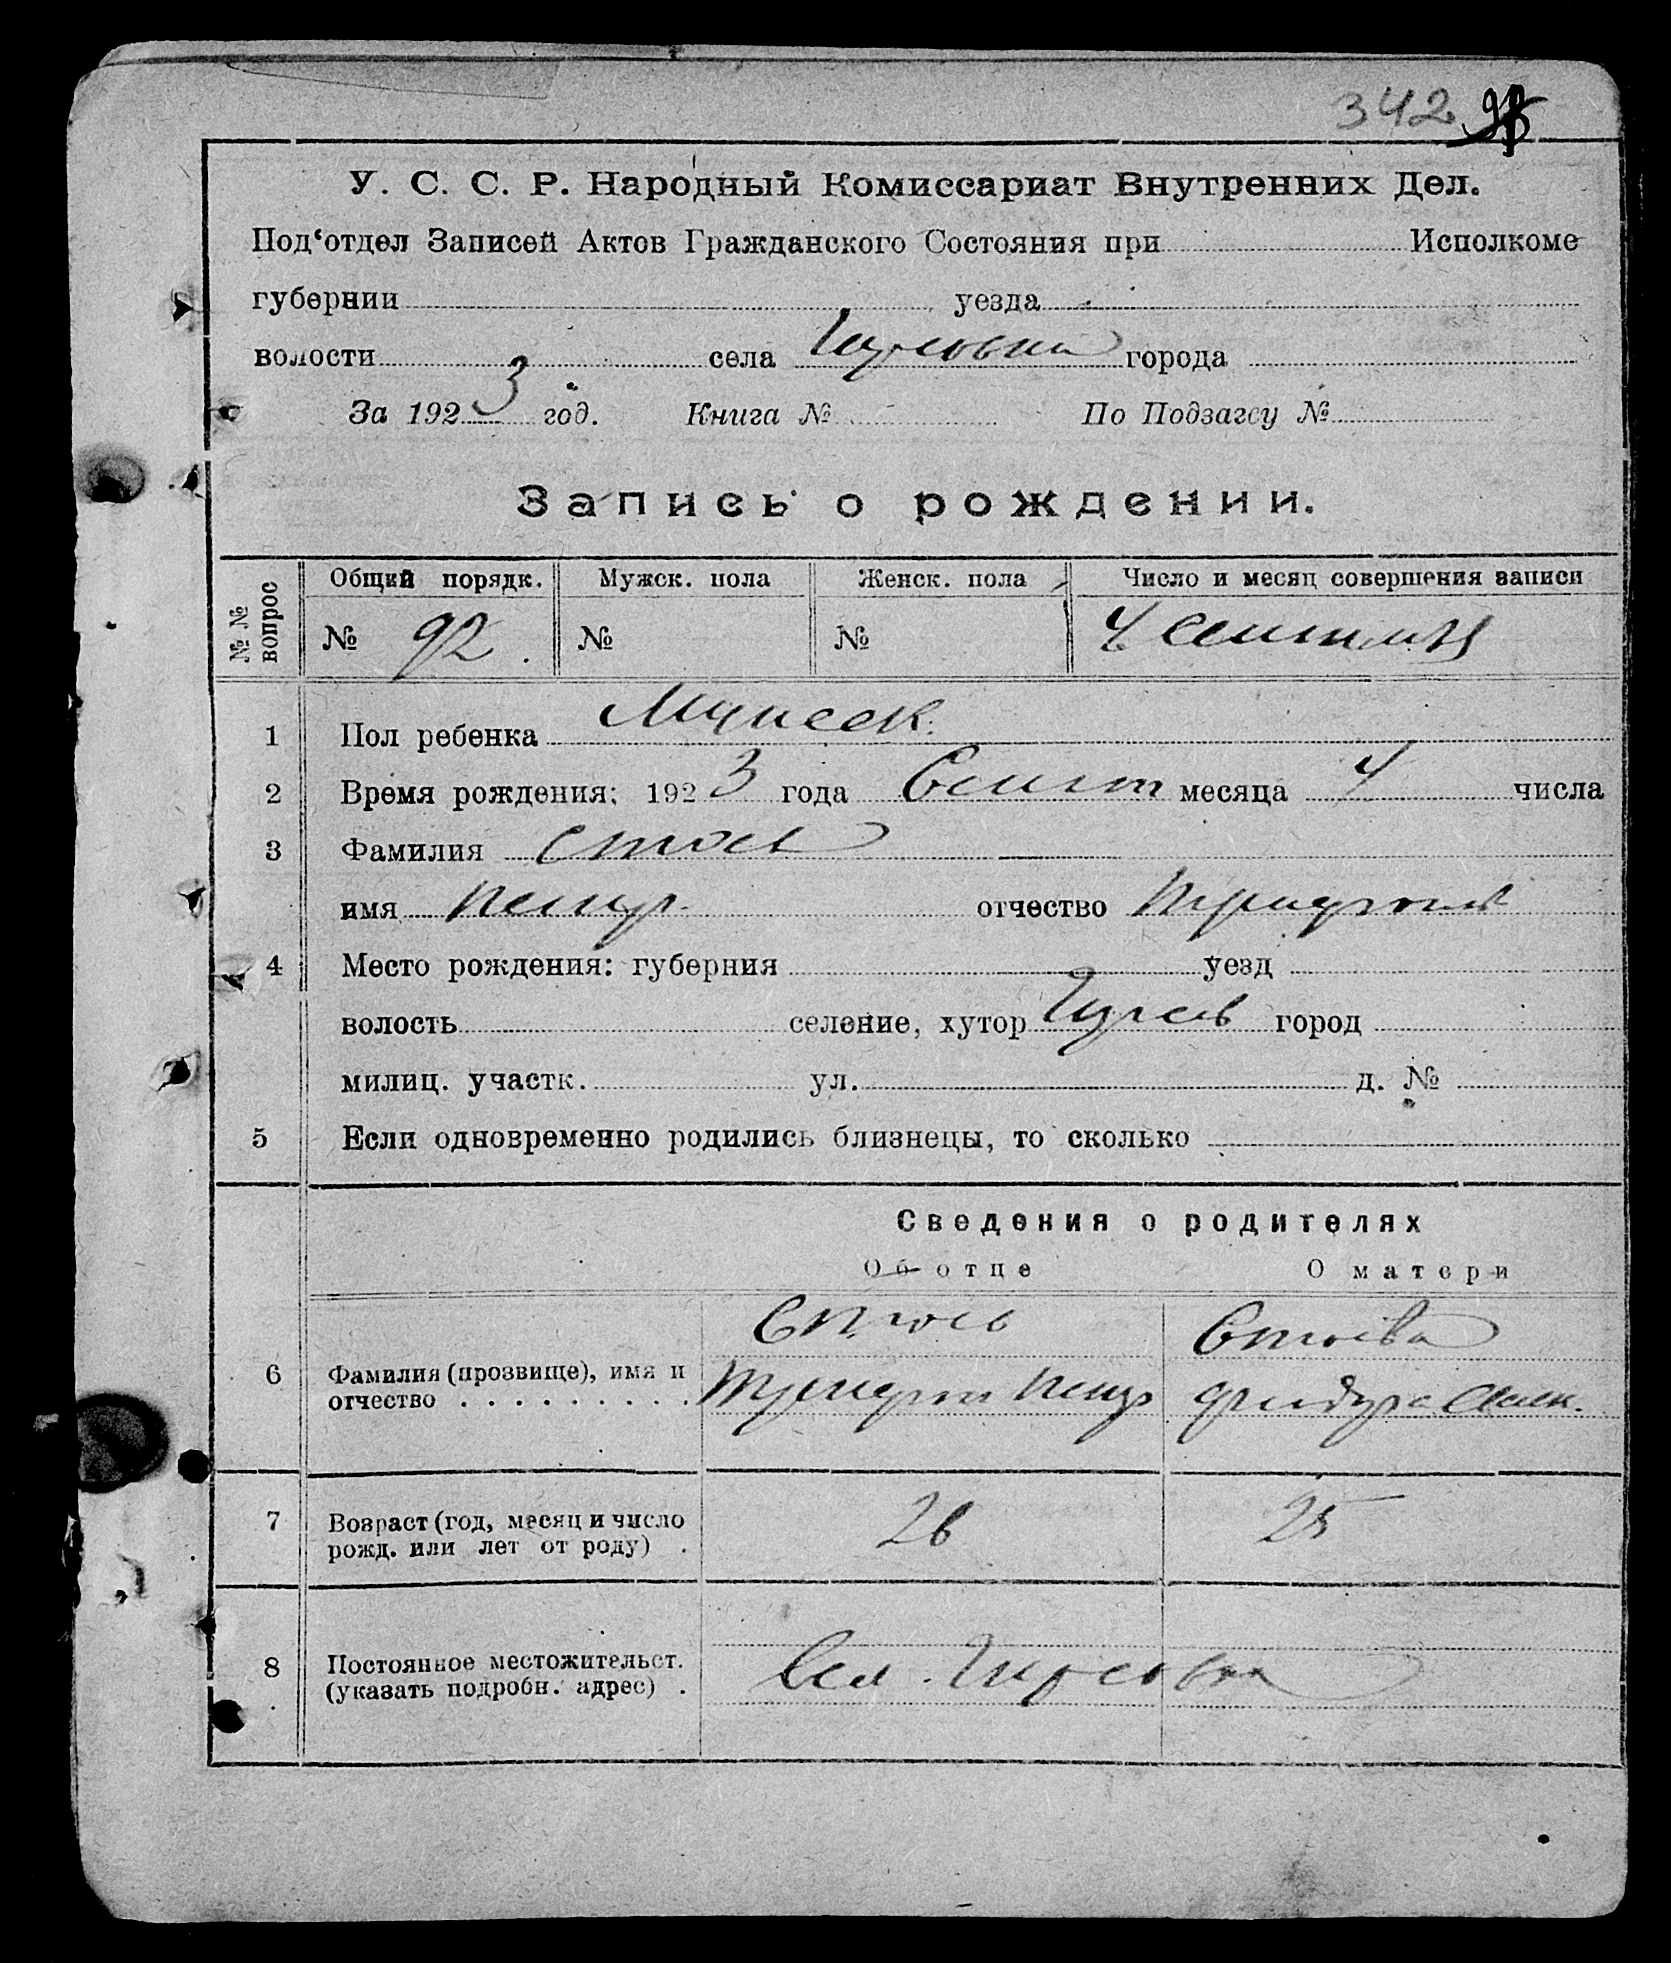 342
У. С. С. Р. Народный Комиссариат Внутренних Дел.
Под‘отдел Записей Актов Гражданского Состояния при Исполкоме
губернии уезда
волости села города
За 1923 год. Книга № По Подзагсу №
Запись о рождении.
№ № вопрос Общий порядк. Мужск. пола Женск. пола Число и месяц совершения записи
№ 92. № № 4
1 Пол ребенка Мужеск.
2 Время рождения: 1923 года Сент месяца 4 числа
3 Фамилия Стоев
имя Петр. отчество
4 Место рождения: губерния уезд
волость селение, хутор город
милиц. участк. ул. д. №
5 Если одновременно родились близнецы, то сколько
Сведения о родителях
Об отце О матери
Стоев Стоева
6 Фамилия (прозвище), имя и отчество Петр
7 Возраст (год, месяц и число рожд. или лет от роду) 26 25
8 Постоянное местожительст. (указать подробн. адрес) Сел.